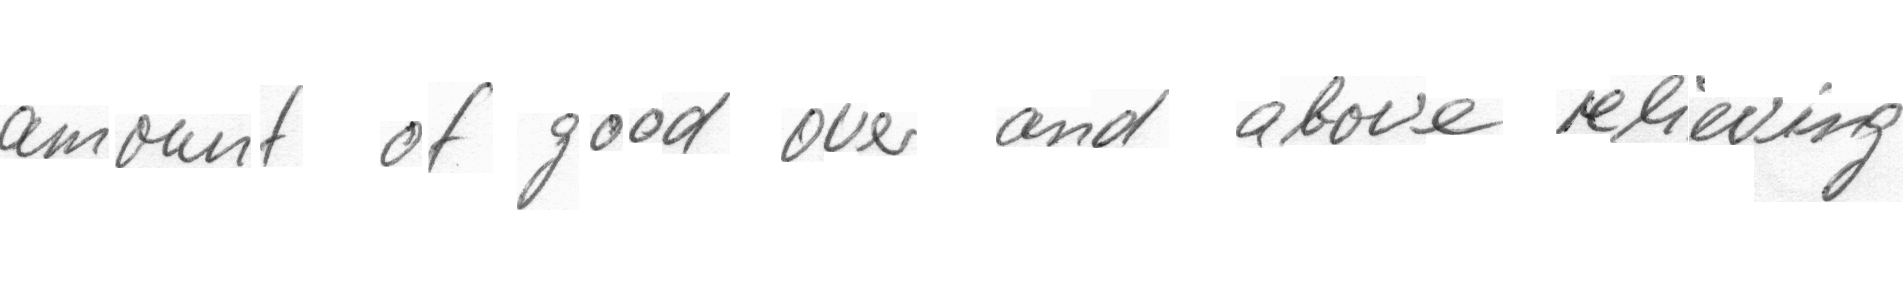 amount of good over and above relieving